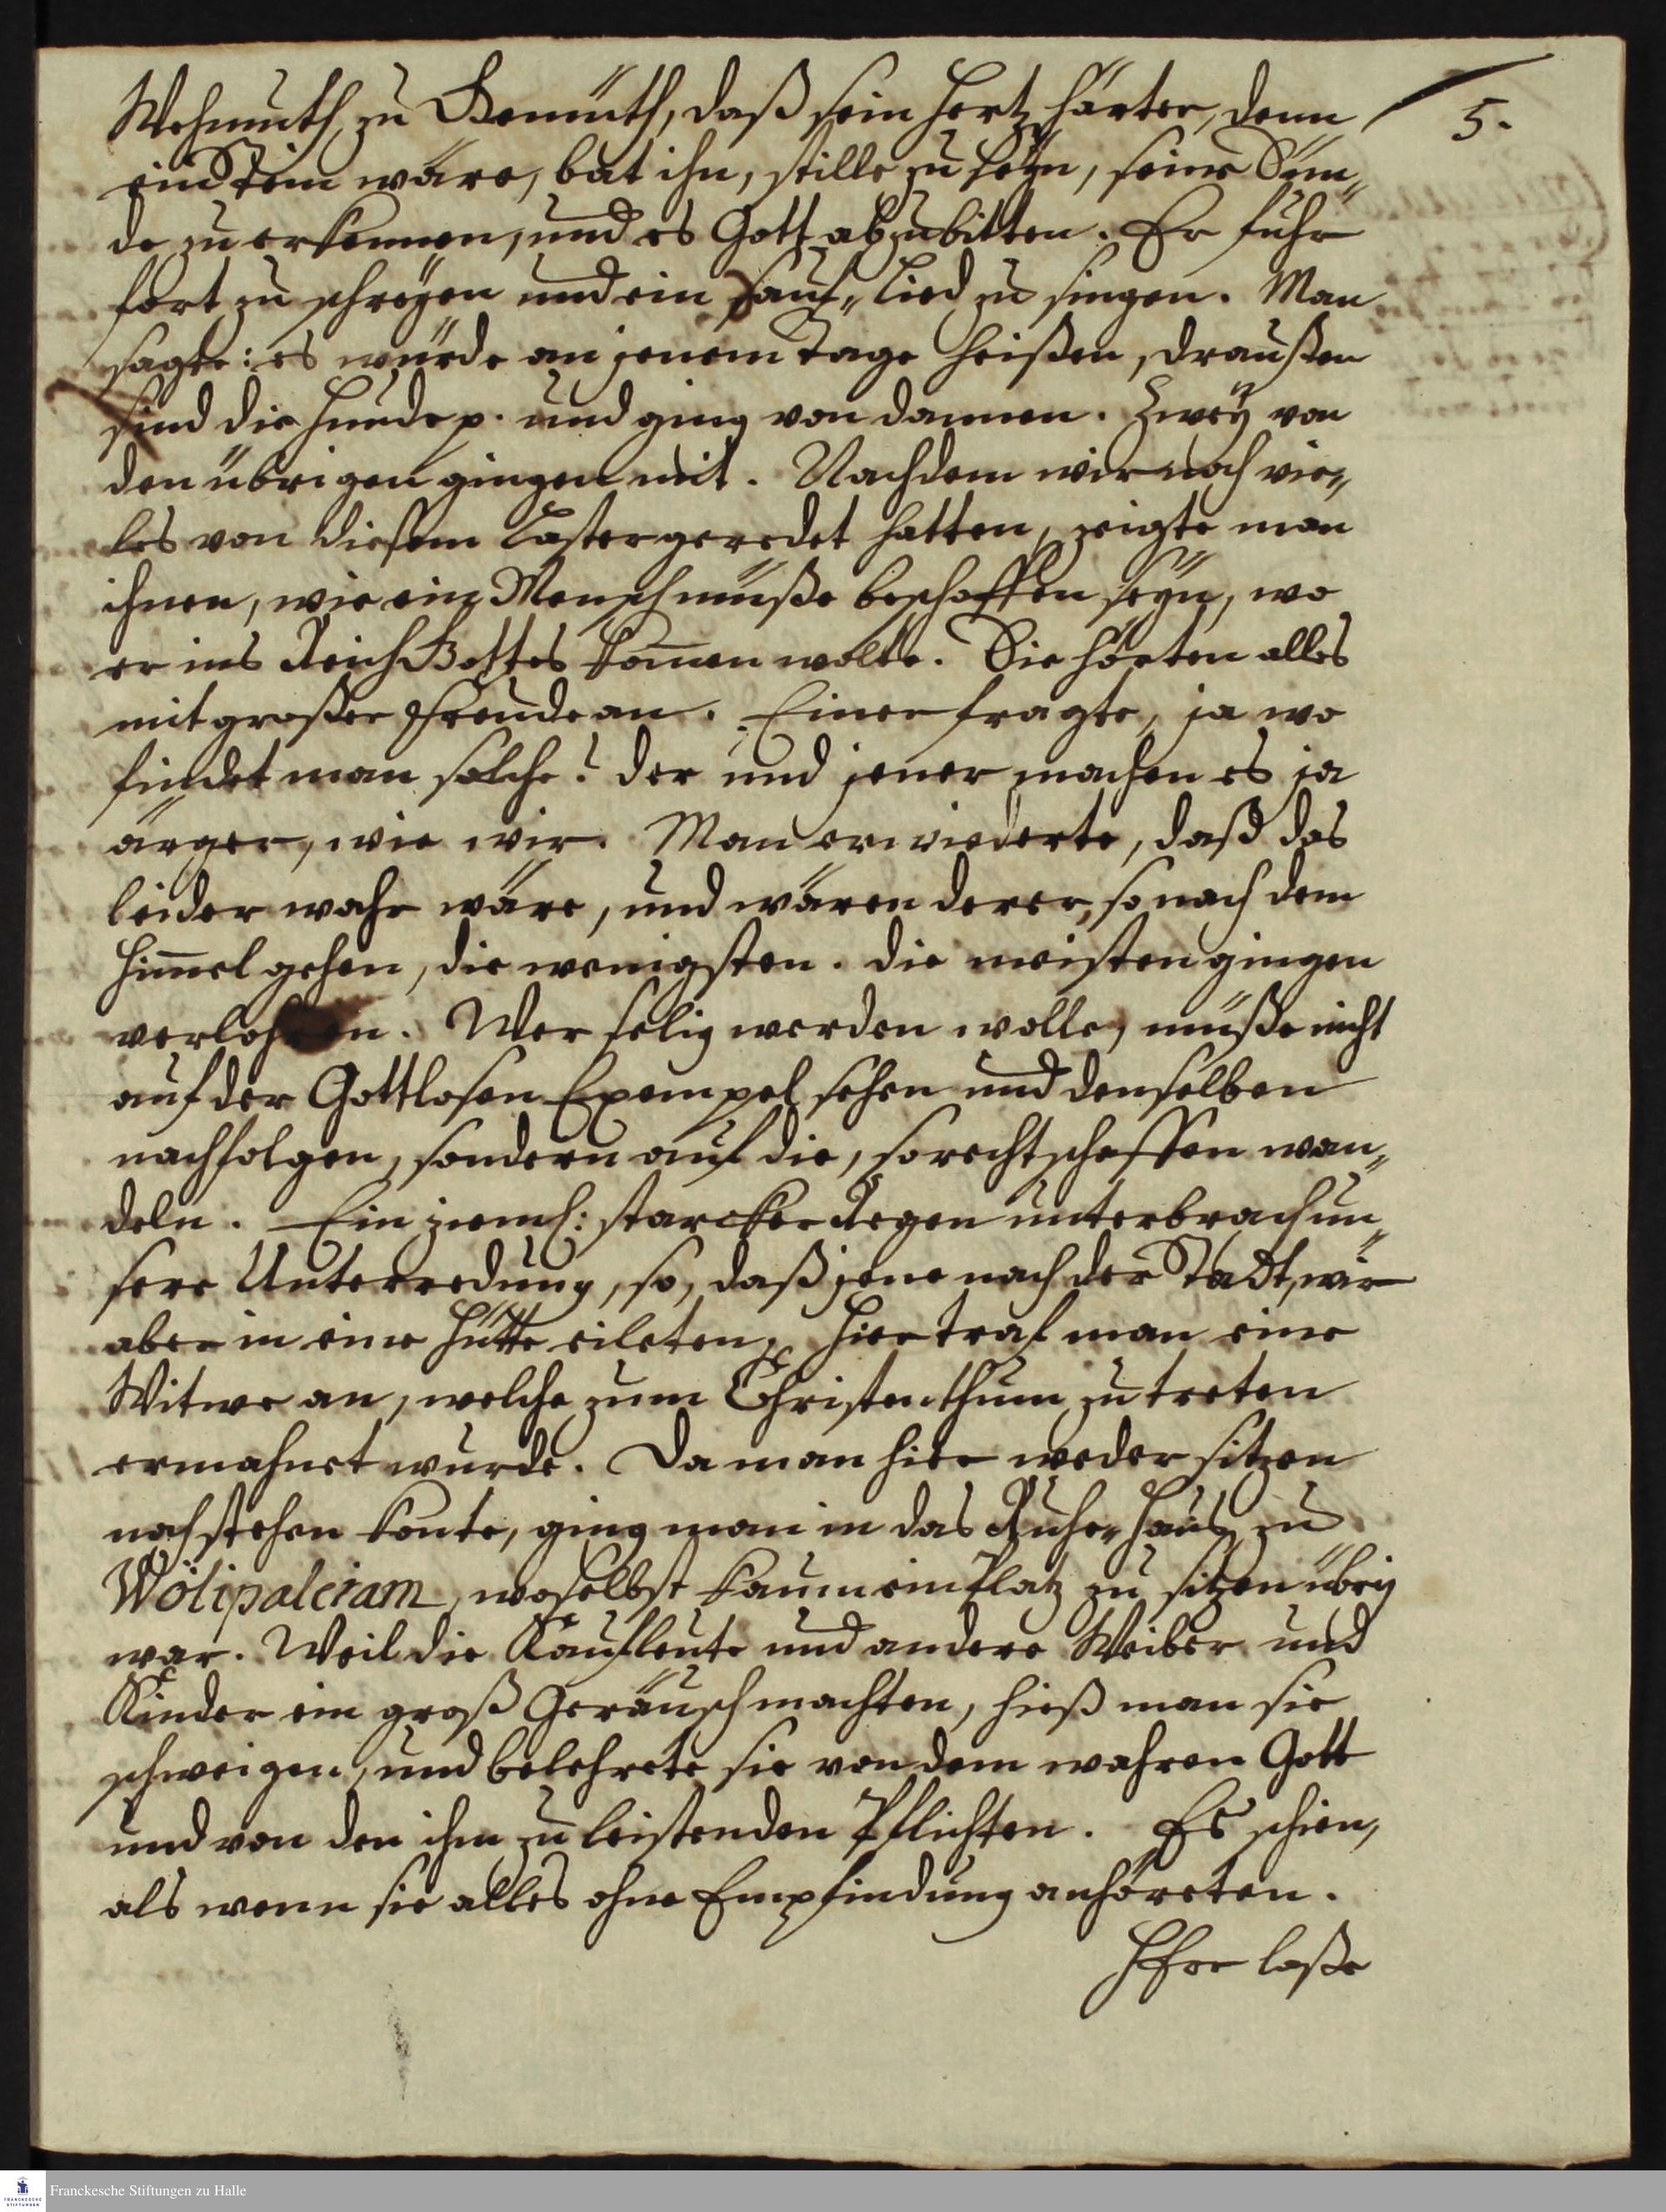 5.
Wehmuth zu Gemüth, daß sein Hertz härter, denn
ein Stein wäre, bat ihn, stille zu seÿn, seine Sün„
de zu erkennen, und es Gott abzubitten. Er fuhr
fort zu schreÿen und ein Sauf„Lied zu singen. Man
sagte: es würde an jenem Tage heißen, draußen
sind die Hunde p. und ging von dannen. Zweÿ von
den übrigen gingen mit. Nachdem wir noch vie„
les von diesem Laster geredet hatten, zeigte man
ihnen, wie ein Mensch müße beschaffen seÿn, wo
er ins Reich Gottes kom̄en wolte. Sie hörten alles
mit großer Freude an. Einer fragte, ja wo
findet man solche? der und jener machen es ja
ärger, wie wir. Man erwiederte, daß das
leider wahr wäre, und wären derer, so nach dem
Him̄el gehen, die wenigsten. Die meisten gingen
verlohren. Wer selig werden wolle, müße nicht
auf der Gottlosen Exempel sehen und denselben
nachfolgen, sondern auf die, so rechtschaffen wan„
deln. Ein zieml: starcker Regen unterbrach un„
sere Unterredung, so, daß jene nach der Stadt, wir
aber in eine Hütte eileten. Hier traf man eine
Witwe an, welche zum Christenthum zu treten
ermahnet wurde. Da man hier weder sitzen
noch stehen konte, ging man in das Ruhe„Haus zu
Wölipaleiam, woselbst kaum ein Platz zu sitzen übrig
war. Weil die Kaufleute und andere Weiber und
Kinder ein groß Geräusch machten, hieß man sie
schweigen, und belehrete sie von dem wahren Gott
und von den ihm zu leistenden Pflichten. Es schien,
als wenn sie alles ohne Empfindung anhöreten.
HErr laße
Franckesche Stiftungen zu Halle
FRANCKESCHE
STIFTUNGEN